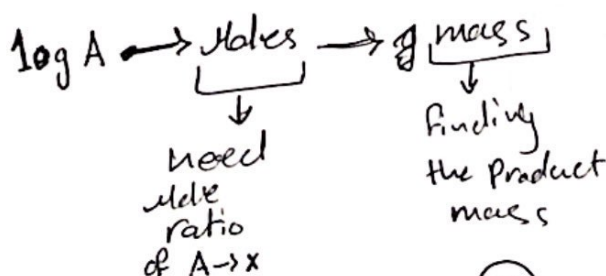 10g A → Moles → g mass
need
Mole
ratio
of A→x
finding
the Product
mass